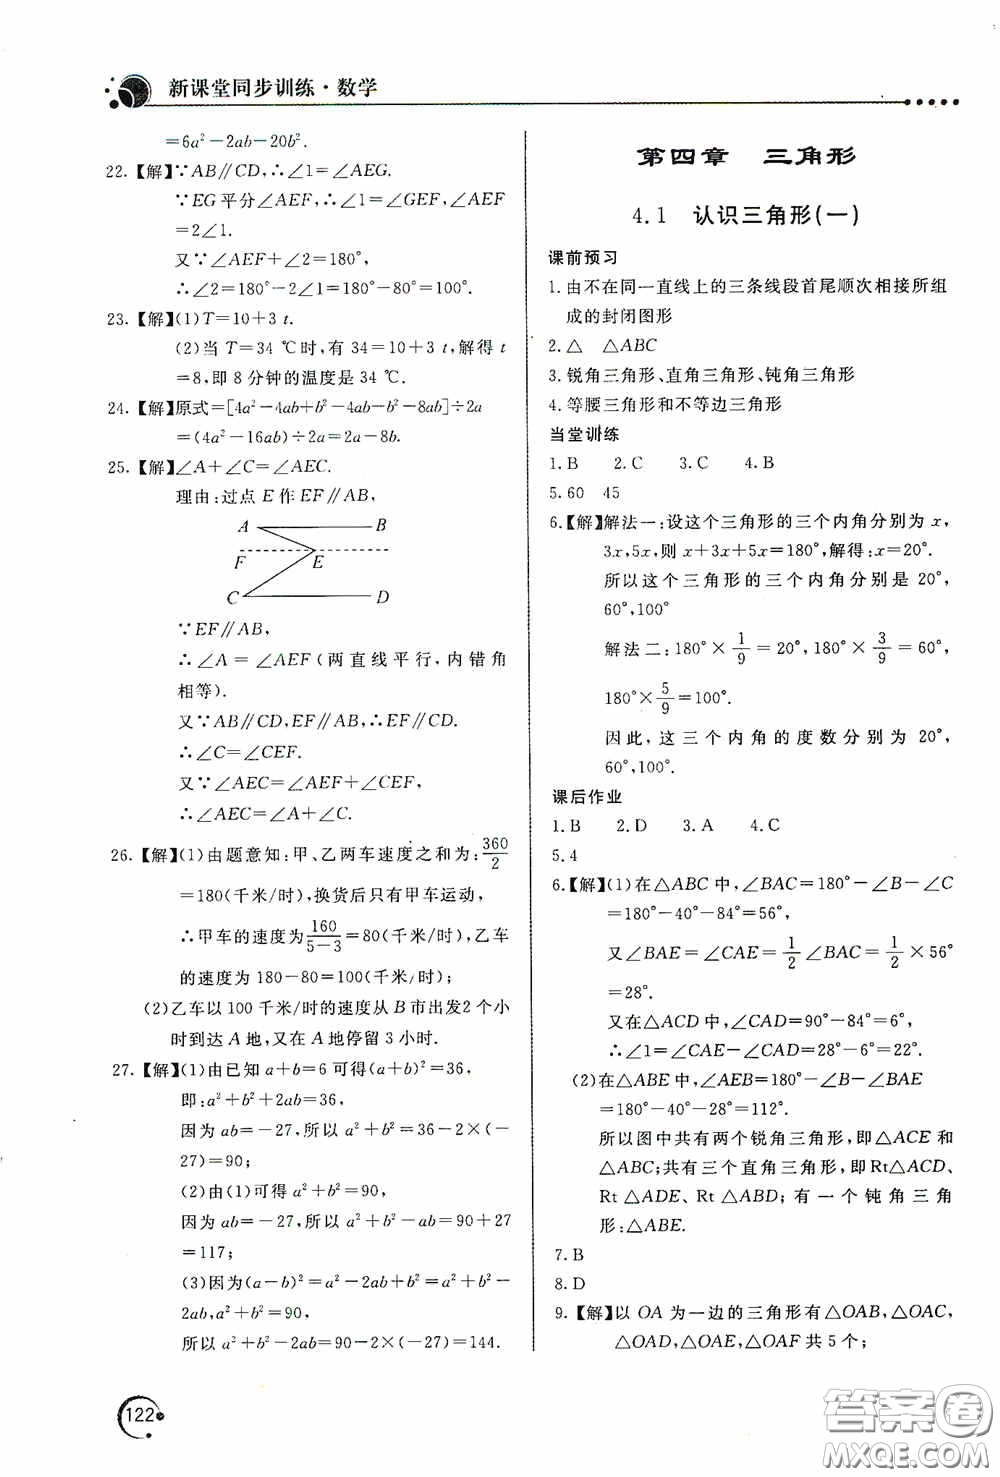 新课堂同步训练·数学
=6a²-2ab-20b².
22.【解】∵AB∥CD,∴∠1=∠AEG.
∵EG平分∠AEF,∴∠1=∠GEF,∠AEF
=2∠1.
又∵∠AEF+∠2=180°,
∴∠2=180°-2∠1=180°-80°=100°.
23.【解】(1)T=10+3t.
(2)当T=34 ℃时,有34=10+3t,解得t
=8,即8分钟的温度是34 ℃.
24.【解】原式=[4a²-4ab+b²-4ab-b²-8ab]÷2a
=(4a²-16ab)÷2a=2a-8b.
25.【解】∠A+∠C=∠AEC.
理由:过点E作EF∥AB,
A B
F E
C D
∵EF∥AB,
∴∠A=∠AEF(两直线平行,内错角
相等).
又∵AB∥CD,EF∥AB,∴EF∥CD.
∴∠C=∠CEF.
又∵∠AEC=∠AEF+∠CEF,
∴∠AEC=∠A+∠C.
26.【解】(1)由题意知:甲、乙两车速度之和为:360/2
=180(千米/时),换货后只有甲车运动,
∴甲车的速度为160/(5-3)=80(千米/时),乙车
的速度为180-80=100(千米/时);
(2)乙车以100千米/时的速度从B市出发2个小
时到达A地,又在A地停留3小时.
27.【解】(1)由已知a+b=6可得(a+b)²=36,
即:a²+b²+2ab=36,
因为ab=-27,所以a²+b²=36-2×(-
27)=90;
(2)由(1)可得a²+b²=90,
因为ab=-27,所以a²+b²-ab=90+27
=117;
(3)因为(a-b)²=a²-2ab+b²=a²+b²-
2ab,a²+b²=90,
所以a²-2ab+b²=90-2×(-27)=144.
122
第四章 三角形
4.1 认识三角形(一)
课前预习
1.由不在同一直线上的三条线段首尾顺次相接所组
成的封闭图形
2.△ △ABC
3.锐角三角形、直角三角形、钝角三角形
4.等腰三角形和不等边三角形
当堂训练
1.B 2.C 3.C 4.B
5.60 45
6.【解】解法一:设这个三角形的三个内角分别为x,
3x,5x,则x+3x+5x=180°,解得:x=20°.
所以这个三角形的三个内角分别是20°,
60°,100°
解法二:180°×1/9=20°,180°×3/9=60°,
180°×5/9=100°.
因此,这三个内角的度数分别为20°,
60°,100°.
课后作业
1.B 2.D 3.A 4.C
5.4
6.【解】(1)在△ABC中,∠BAC=180°-∠B-∠C
=180°-40°-84°=56°,
又∠BAE=∠CAE=1/2∠BAC=1/2×56°
=28°.
又在△ACD中,∠CAD=90°-84°=6°,
∴∠1=∠CAE-∠CAD=28°-6°=22°.
(2)在△ABE中,∠AEB=180°-∠B-∠BAE
=180°-40°-28°=112°.
所以图中共有两个锐角三角形,即△ACE和
△ABC;共有三个直角三角形,即Rt△ACD、
Rt△ADE、Rt△ABD;有一个钝角三角
形:△ABE.
7.B
8.D
9.【解】以OA为一边的三角形有△OAB,△OAC,
△OAD,△OAE,△OAF共5个;
答案卷
MXQE.COM